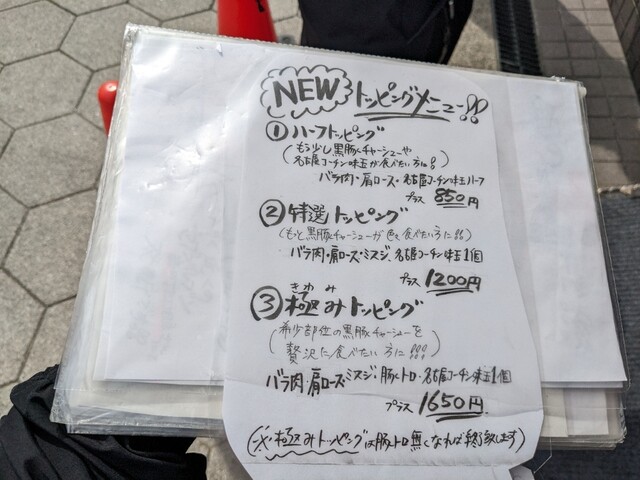 NEW トッピングメニュー!!
①ハーフトッピング
(もう少し黒豚チャーシューや
名古屋コーチン味玉が食べたい方に!!)
バラ肉・肩ロース・名古屋コーチン味玉ハーフ
プラス 850円
②特選トッピング
(もっと黒豚チャーシューが色々食べたい方に!!)
バラ肉・肩ロース・ミスジ・名古屋コーチン味玉1個
プラス 1200円
きわ み
③極みトッピング
(希少部位の黒豚チャーシューを
贅沢に食べたい方に!!!)
バラ肉・肩ロース・ミスジ・豚トロ・名古屋コーチン味玉1個
プラス 1650円
(※極みトッピングは豚トロ無くなれば終了致します)